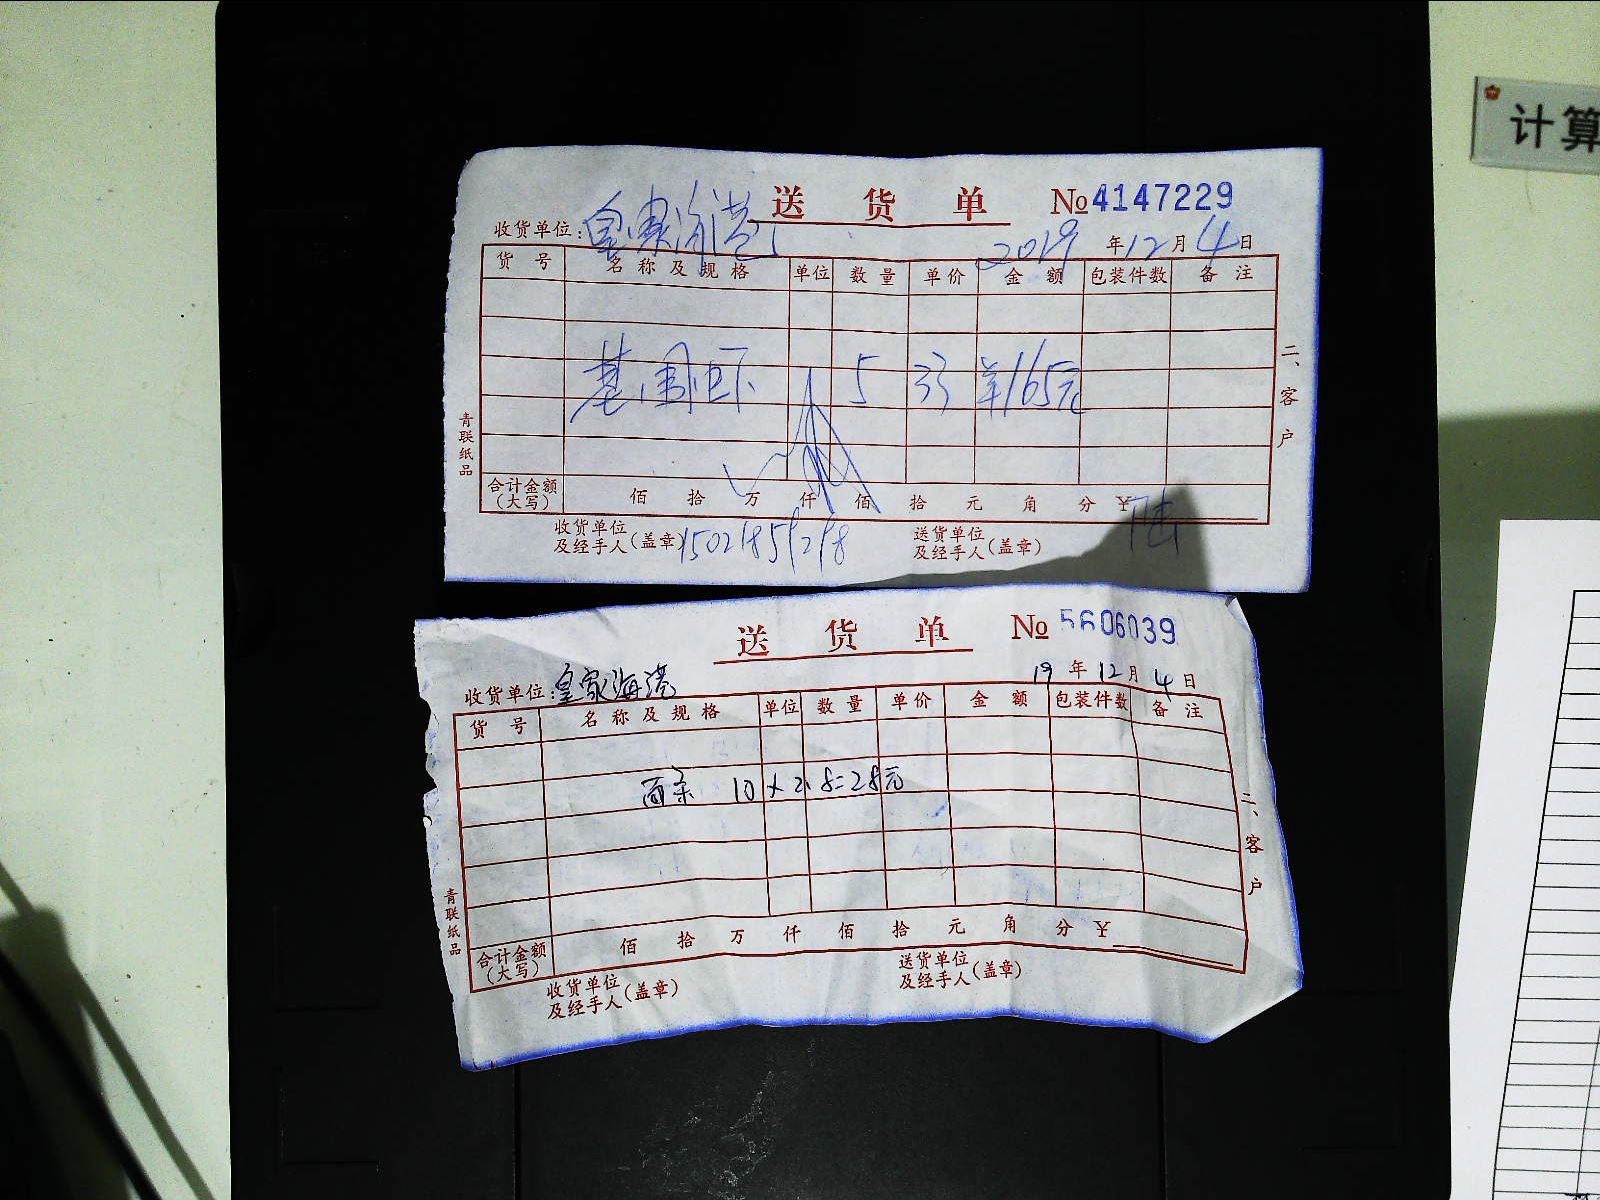 计算
送货单 №4147229
收货单位: 皇家海港 2019年12月4日
货号 名称及规格 单位 数量 单价 金额 包装件数 备注
基围虾 5 33 ¥165元
合计金额(大写) 佰 拾 万 仟 佰 拾 元 角 分 ¥
收货单位及经手人(盖章) 送货单位及经手人(盖章) 陆
二、客户
青联纸品
送货单 №5606039
收货单位: 皇家海港 19年12月4日
货号 名称及规格 单位 数量 单价 金额 包装件数 备注
面条 10×2.8=28元
合计金额(大写) 佰 拾 万 仟 佰 拾 元 角 分 ¥
收货单位及经手人(盖章) 送货单位及经手人(盖章)
二、客户
青联纸品